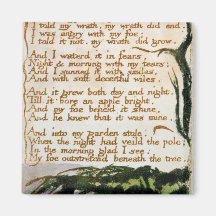 I told my wrath, my wrath did end
I was angry with my foe:
I told it not, my wrath did grow.
And I waterd it in fears,
Night & morning with my tears:
And I sunned it with smiles,
And with soft deceitful wiles.
And it grew both day and night,
Till it bore an apple bright.
And my foe beheld it shine,
And he knew that it was mine.
And into my garden stole,
When the night had veild the pole;
In the morning glad I see,
My foe outstretchd beneath the tree.